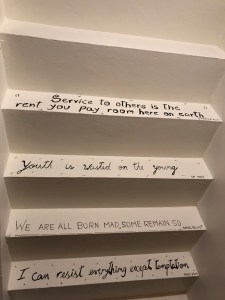 "Service to others is the
rent you pay room here on earth"
Youth is wasted on the young.
WE ARE ALL BORN MAD, SOME REMAIN SO
I can resist everything except temptation